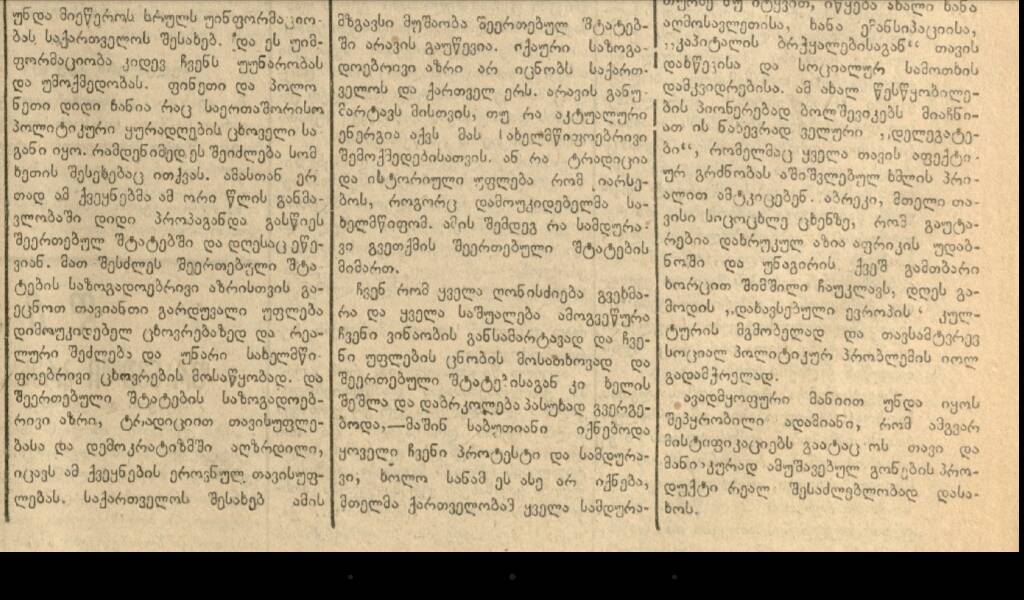 უნდა მიეწეროს სრულს უინფორმაციო-
ბას საქართველოს შესახებ. და ეს უიმ-
ფორმაციობა კიდევ ჩვენს უუნარობას
და უმოქმედობას. ფინეთი და პოლო
ნეთი დიდი ხანია რაც საერთაშორისო
პოლიტიკური ყურადღების ცხოველი სა
განი იყო. რამდენიმედ ეს შეიძლება სომ
ხეთის შესახებაც ითქვას. ამასთან ერ
თად ამ ქვეყნებმა ამ ორი წლის განმა-
ვლობაში დიდი პროპაგანდა გასწიეს
შეერთებულ შტატებში და დღესაც ეწე-
ვიან. მათ შესძლეს შეერთებული შტა
ტების საზოგადოებრივი აზრისთვის გა-
ეცნოთ თავიანთი გარდუვალი უფლება
დიმოუკიდებელ ცხოვრებაზედ და რეა-
ლური შეძლება და უნარი სახელმწი-
ფოებრივი ცხოვრების მოსაწყობად. და
შეერთებული შტატების საზოგადოებ-
რივი აზრი, ტრადიციით თავისუფლე-
ბასა და დემოკრატიზმში აღზრდილი,
იცავს ამ ქვეყნების ეროვნულ თავისუფ-
ლებას. საქართველოს შესახებ ამის
მზგავსი მუშაობა შეერთებულ შტატებ-
ში არავის გაუწევია. იქაური საზოგა-
დოებრივი აზრი არ იცნობს საქართ-
ველოს და ქართველ ერს. არავის განუ-
მარტავს მისთვის, თუ რა აქტუალური
ენერგია აქვს მას სახელმწიფოებრივი
შემოქმედებისათვის. ან რა ტრადიცია
და ისტორიული უფლება რომ იარსე-
ბოს, როგორც დამოუკიდებელმა სა-
ხელმწიფომ. ამის შემდეგ რა სამდურა-
ვი გვეთქმის შეერთებული შტატების
მიმართ.
ჩვენ რომ ყველა ღონისძიება გვეხმა-
რა და ყველა საშუალება ამოგვეწურა
ჩვენი ვინაობის განსამარტავად და ჩვე-
ნი უფლების ცნობის მოსათხოვად და
შეერთებული შტატებისაგან კი ხელის
შეშლა და დაბრკოლება პასუხად გვერგე-
ბოდა,—მაშინ საბუთიანი იქნებოდა
ყოველი ჩვენი პროტესტი და სამდურა-
ვი; ხოლო სანამ ეს ასე არ იქნება,
მთელმა ქართველობამ ყველა სამდურა-
აღმოსავლეთისა, ხანა ემანსიპაციისა,
,,კაპიტალის ბრჭყალებისაგან“ თავის
დახწევისა და სოციალურ სამოთხის
დამკვიდრებისა. ამ ახალ წესწყობილე-
ბის პიონერებად ბოლშევიკებს მიაჩნი-
ათ ის ნახევრად ველური ,,დელეგატე-
ბი“, რომელმაც ყველა თავის აფექტი-
ურ გრძნობას აშიშვლებულ ხმლის პრი-
ალით ამტკიცებენ. აბრეკი, მთელი თა-
ვისი სიცოცხლე ცხენზე, რომ გაუტა-
რებია დახრუკულ აზია აფრიკის უდაბ-
ნოში და უნაგირის ქვეშ გამთბარი
ხორცით შიმშილი ჩაუკლავს, დღეს გა-
მოდის ,,დახავსებული ევროპის“ კულ-
ტურის მგმობელად და თავსამტვრევ
სოციალ პოლიტიკურ პრობლემის იოლ
გადამჭრელად.
ავადმყოფური მანიით უნდა იყოს
შეპყრობილი ადამიანი, რომ ამგვარ
მისტიფიკაციებს გაატაცოს თავი და
მანიაკურად ამუშავებულ გონების პრო-
დუქტი რეალ შესაძლებლობად დასა-
ხოს.